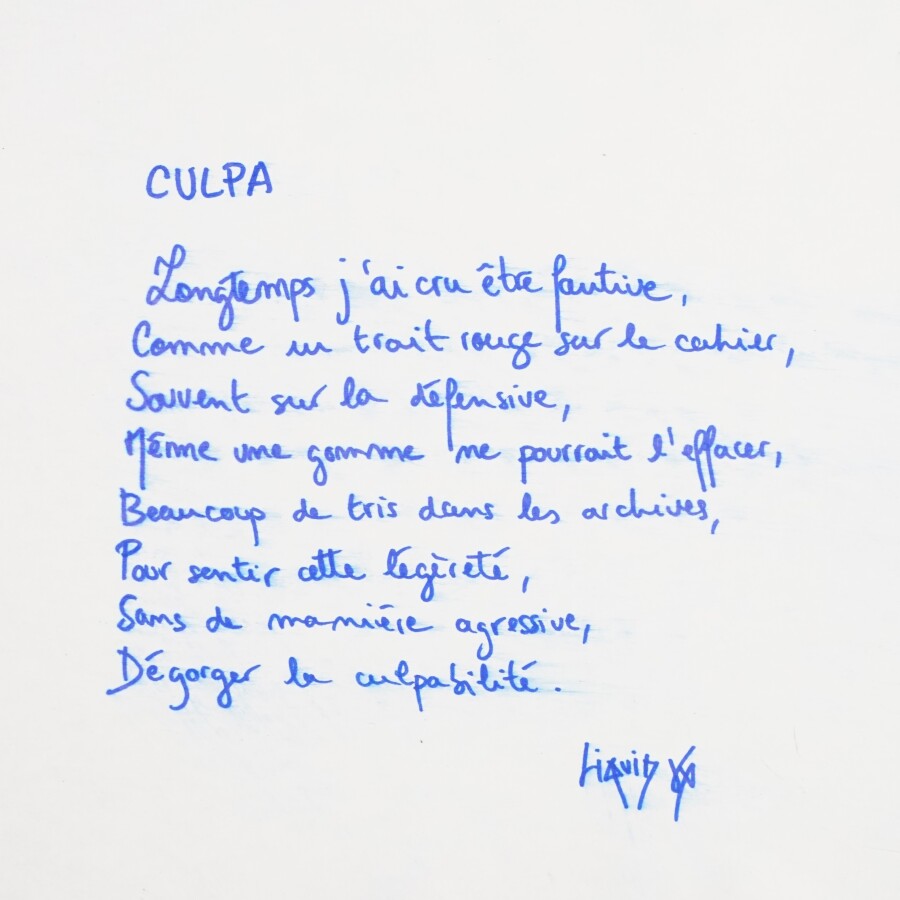 CULPA
Longtemps j'ai cru être fautive,
Comme un trait rouge sur le cahier,
Souvent sur la défensive,
Même une gomme ne pourrait l'effacer,
Beaucoup de tris dans les archives,
Pour sentir cette légèreté,
Sans de manière agressive,
Dégorger la culpabilité.